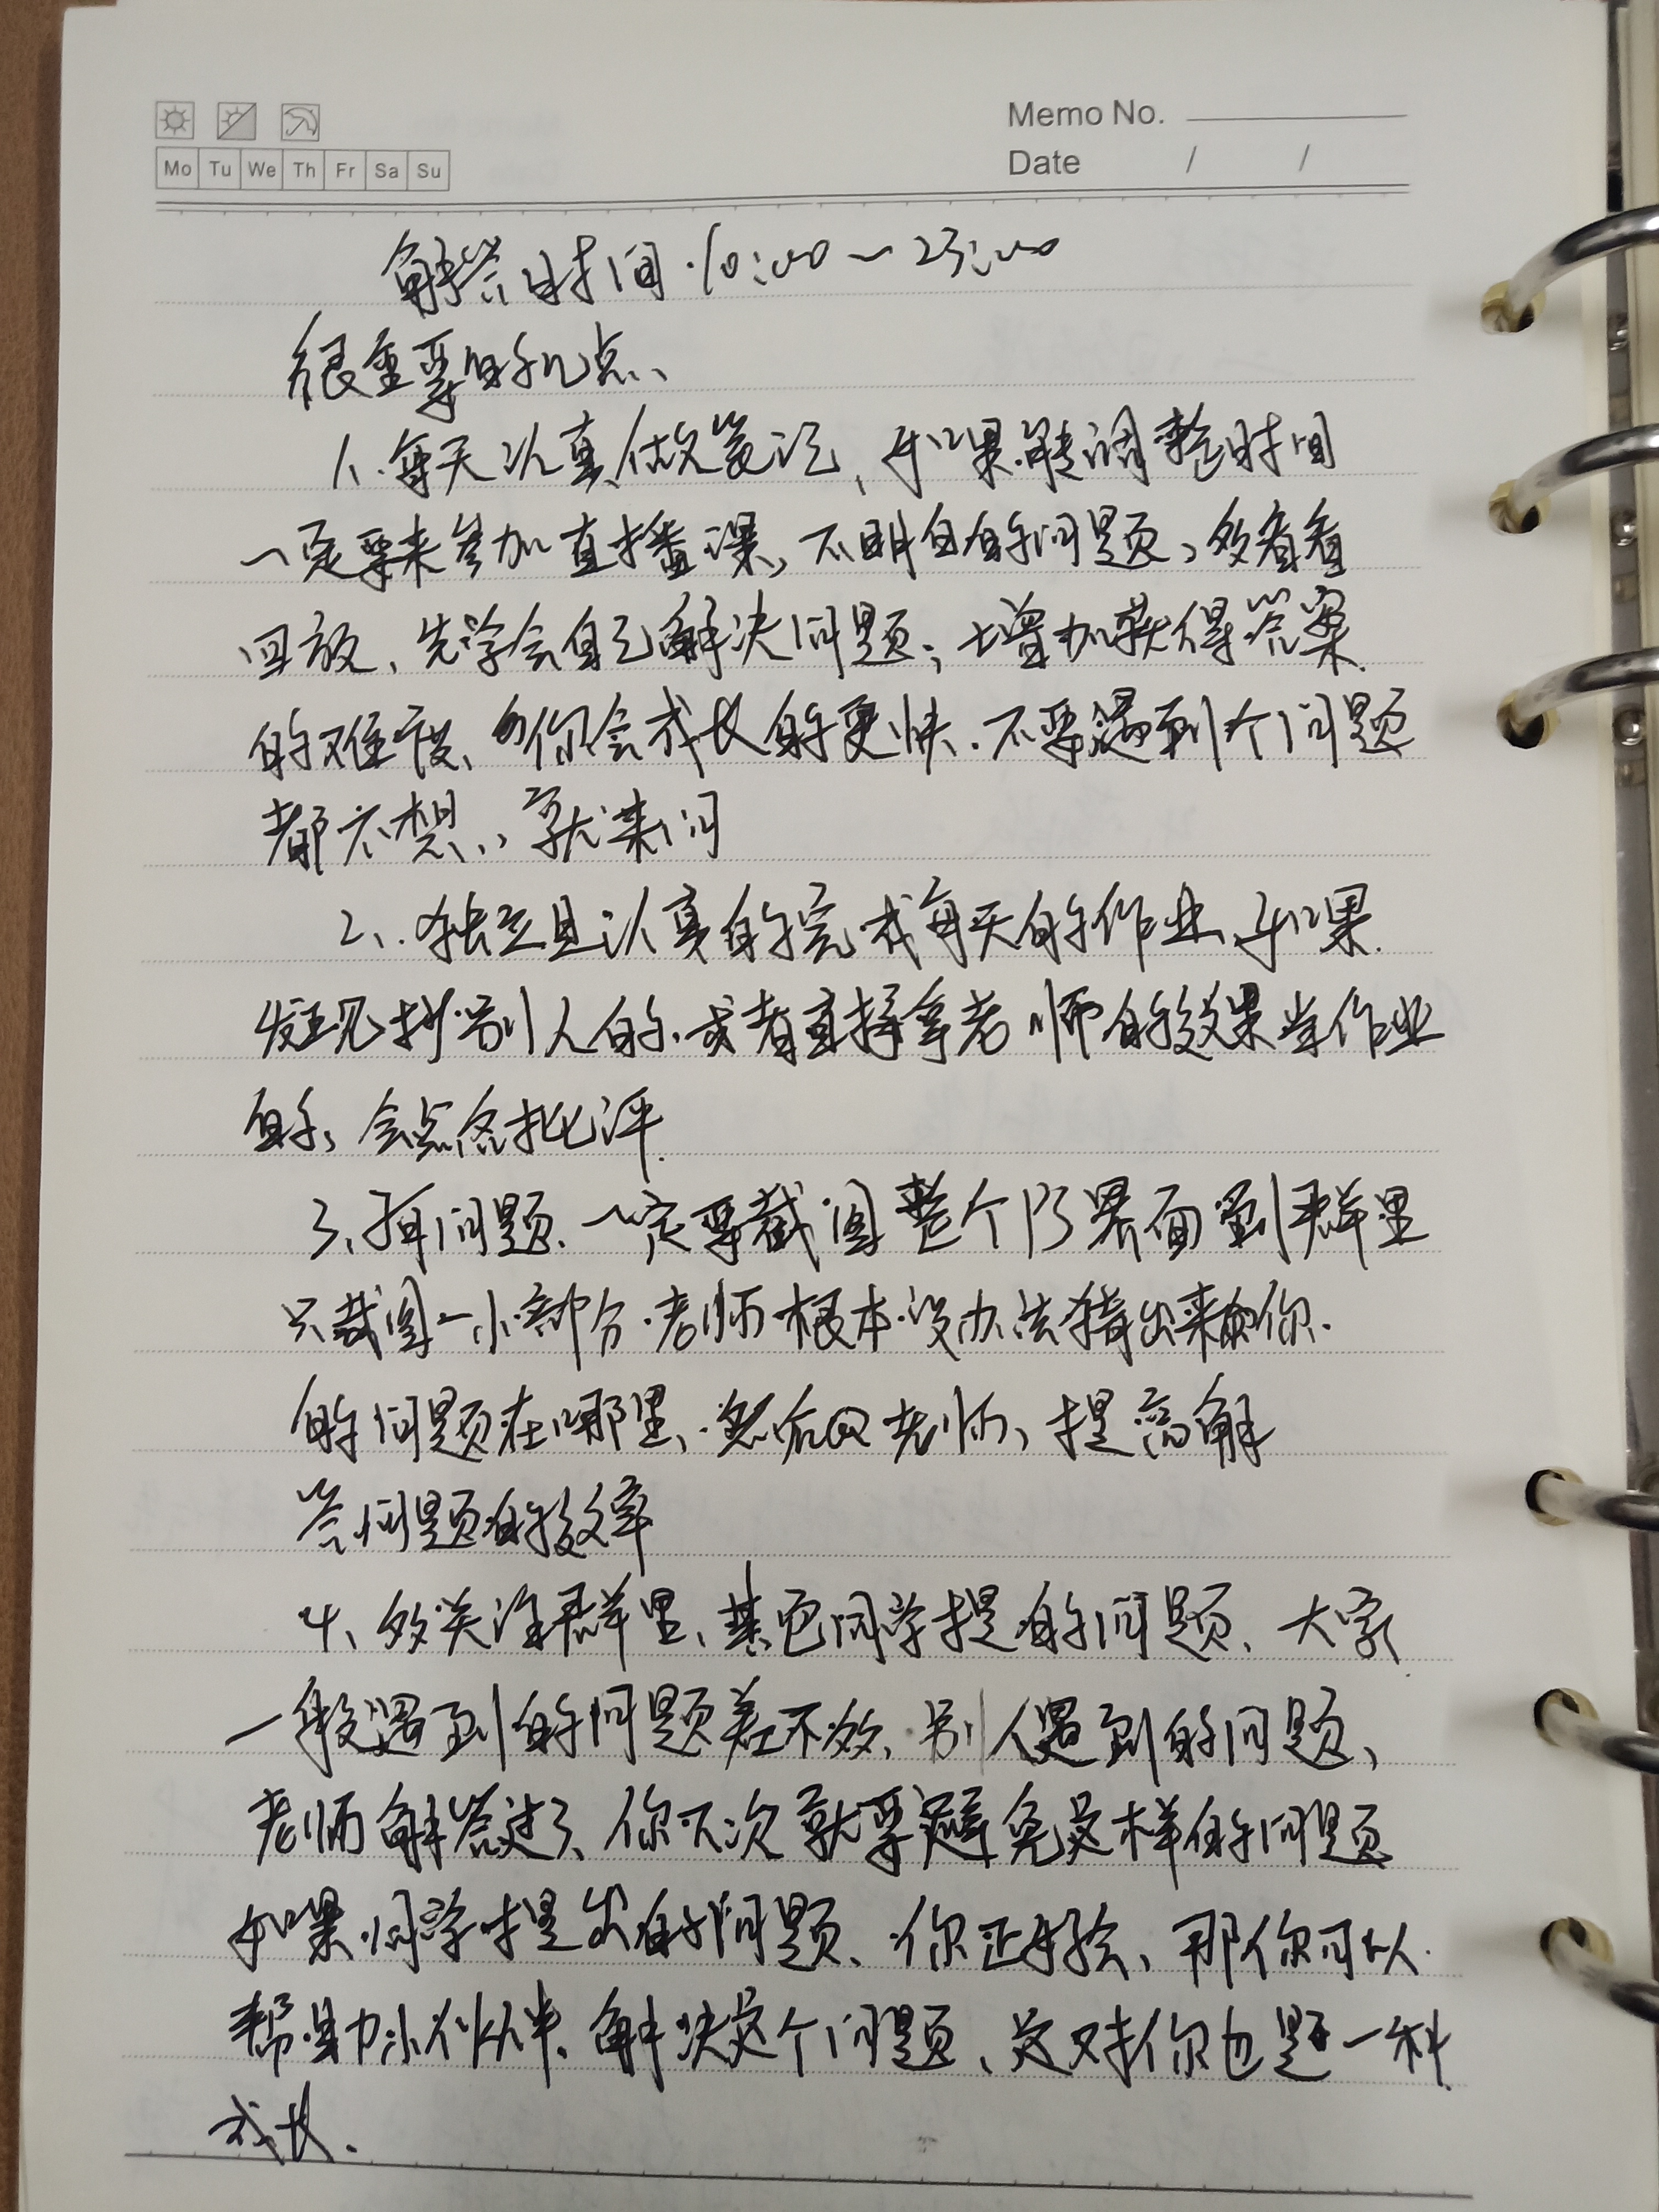 Memo No.
Mo Tu We Th Fr Sa Su
Date / /
解答时间·10:00~23:00
很重要的几点、
1、每天认真做笔记,如果能调整时间
一定要来参加直播课,不明白的问题,多看看
回放、先学会自己解决问题,增加获得答案
的难度、你会成长的更快.不要遇到个问题
都不想、就来问
2、独立且认真的完成每天的作业、如果
发现抄别人的.或者直接拿老师的效果当作业
的,会点名批评.
3、有问题、一定要截图整个PS界面到群里
只截图一小部分.老师根本没办法指出来你.
的问题在哪里、然后@老师、提高解
答问题的效率
4、多关注群里、其它同学提的问题、大家
一般遇到的问题差不多.别人遇到的问题、
老师解答过了、你下次就要避免这样的问题
如果同学提出的问题、你正好会、那你可以
帮助小伙伴.解决这个问题、这对你也是一种
成长.